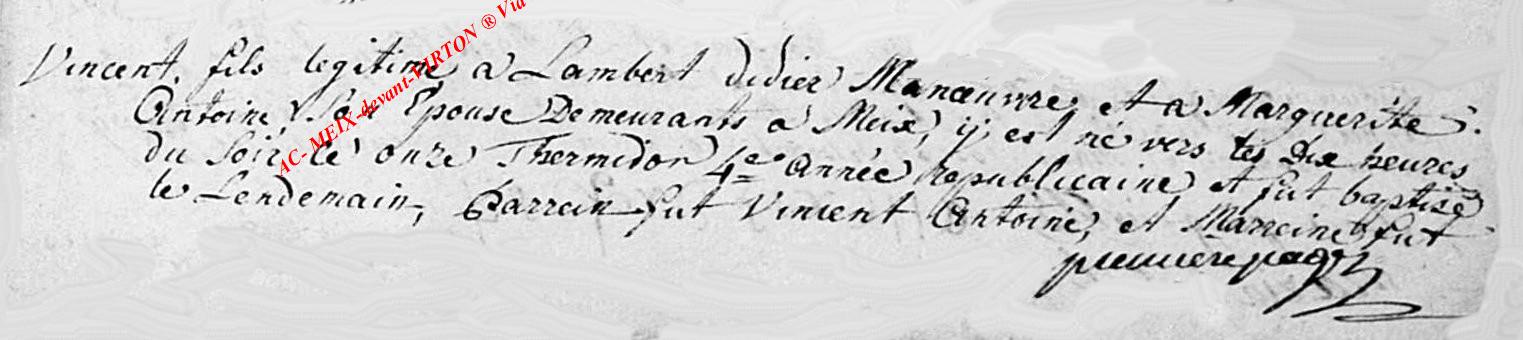 Vincent, fils legitime a Lambert didier Manœuvre, et a Marguerite
Antoine, Son Epouse Demeurants a Meix, y est né vers les Dix heures
du Soir le onze Thermidor 4e année republicaine et fut baptisé
le Lendemain, Parrein fut Vincent Antoine, et Marreine fut
premiere page
AC- MEIX-devant-VIRTON ® Via